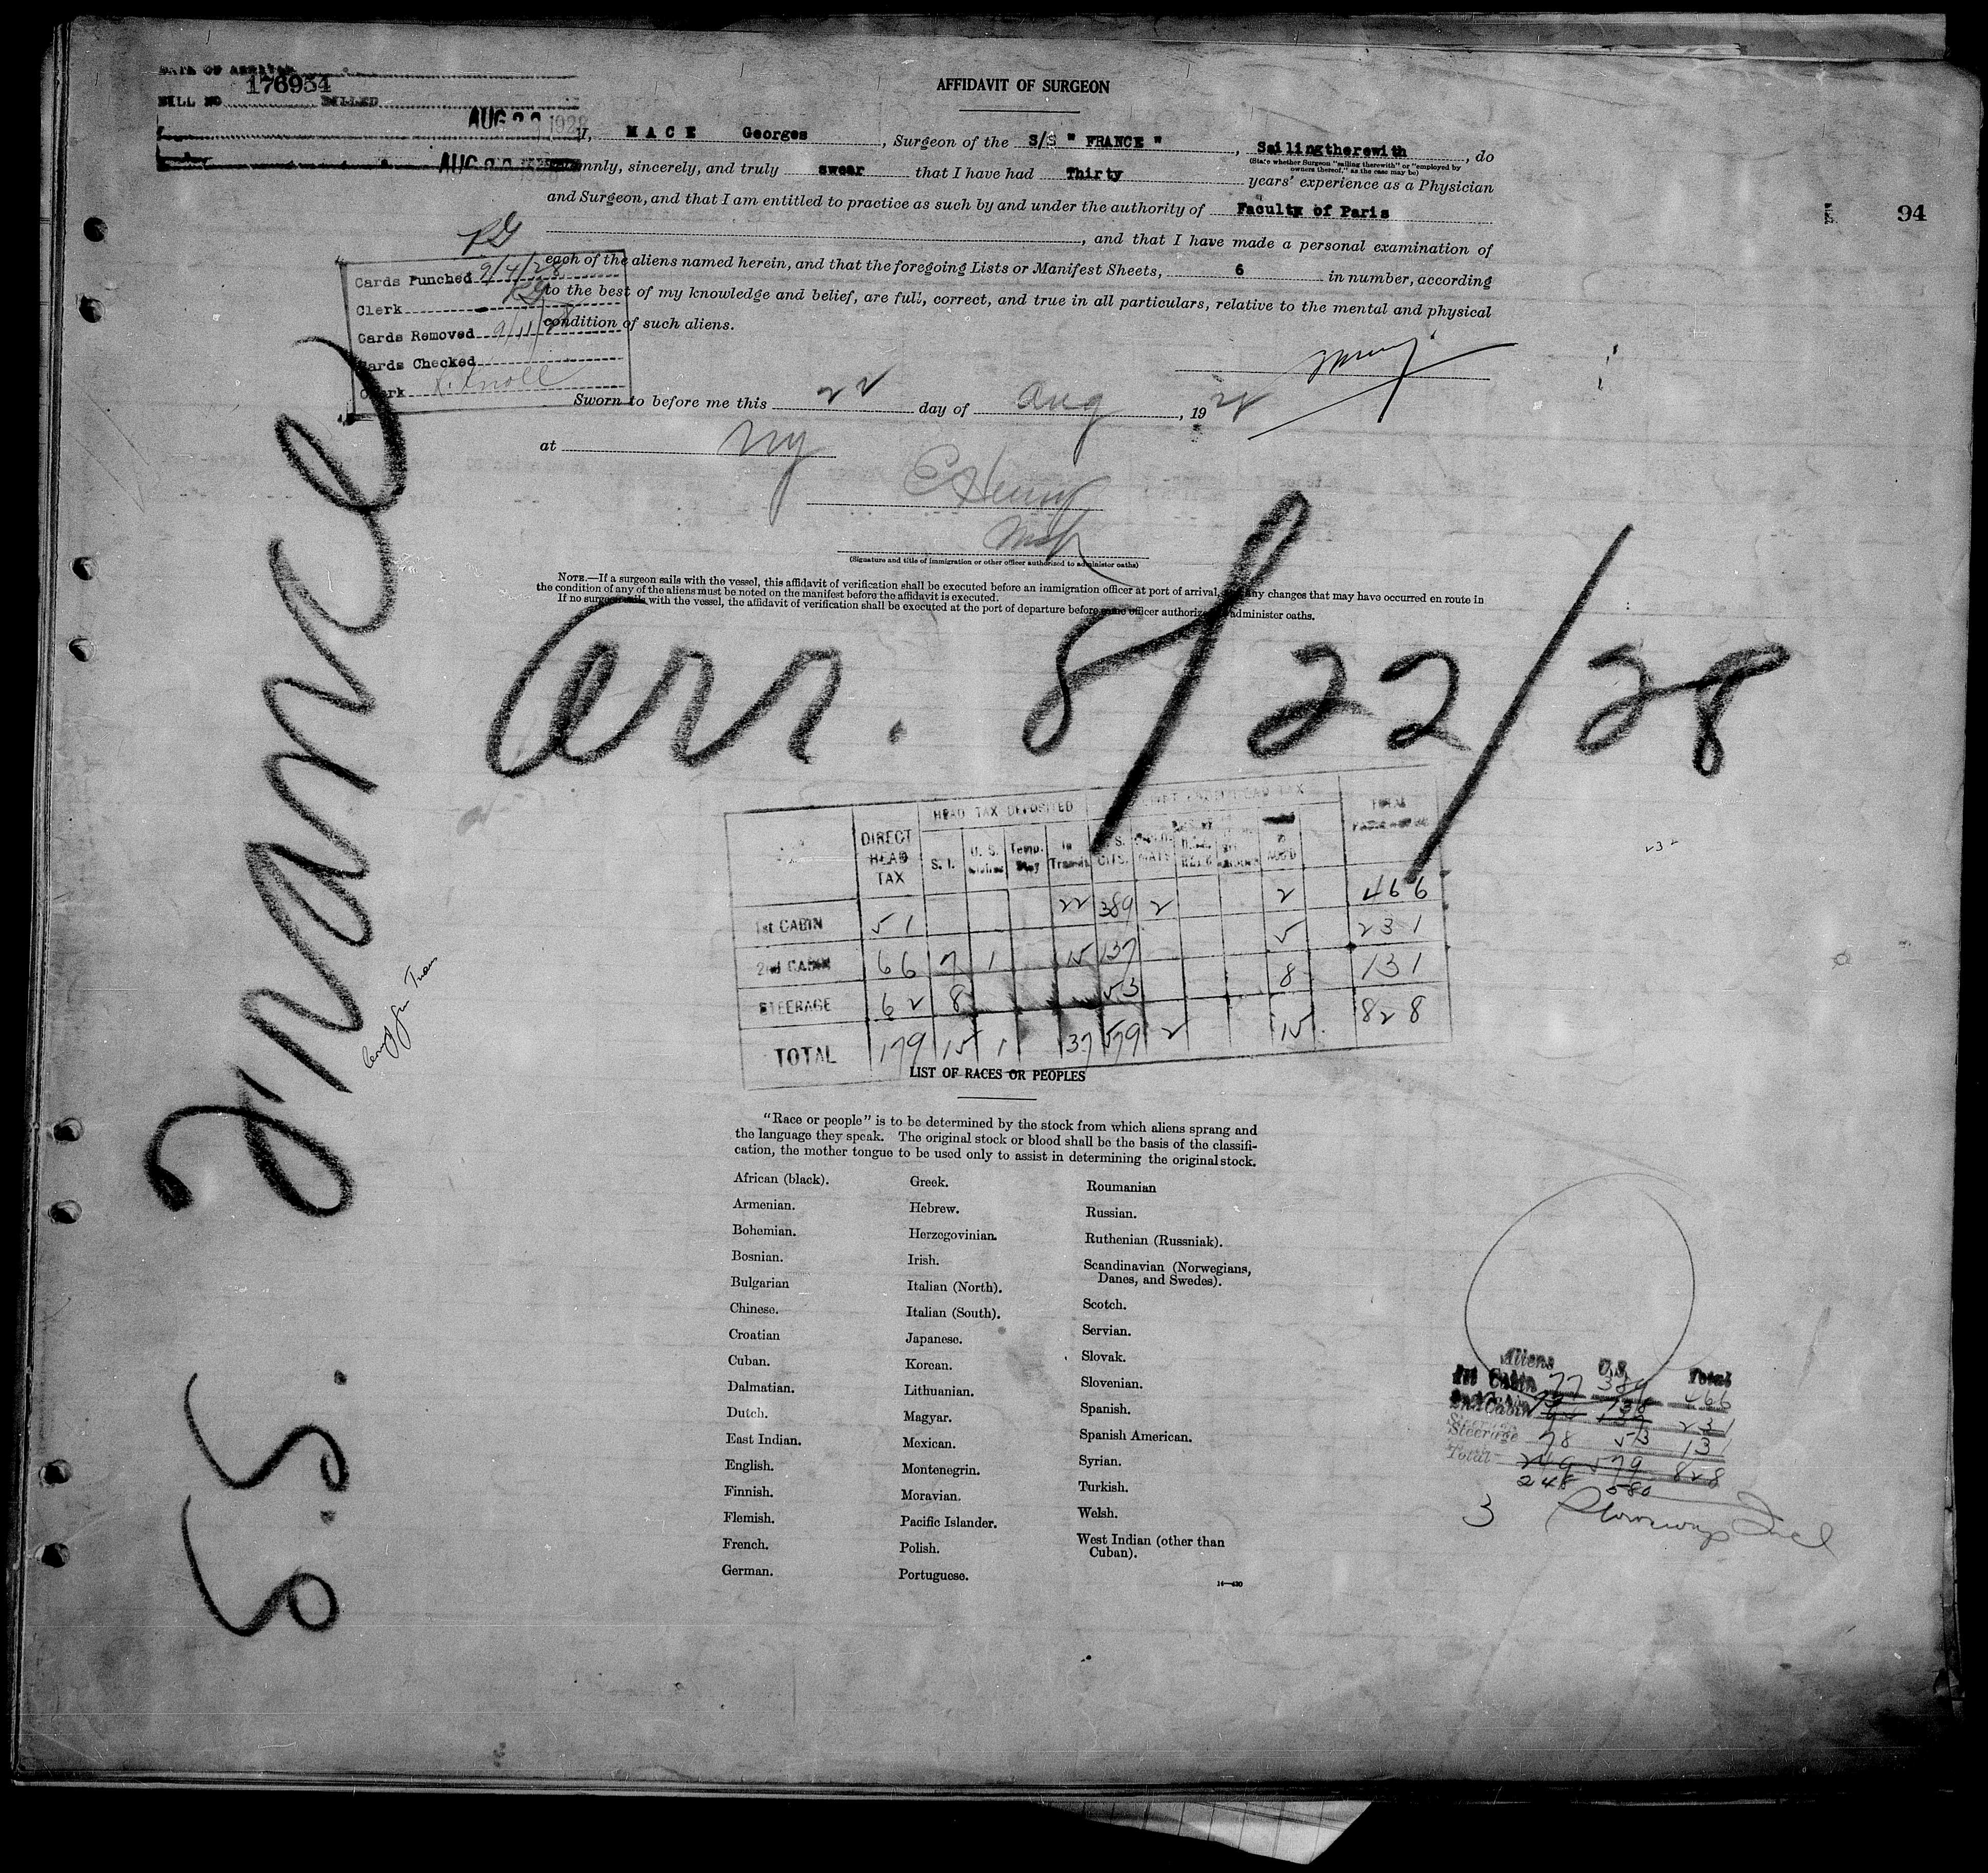 DATE OF ARRIVAL
176954
BILL NO BILLED
AUG 22 1928
AUG 22
AFFIDAVIT OF SURGEON
I, MACE Georges, Surgeon of the S/S " FRANCE ", Sailingtherewith, do
(State whether Surgeon "sailing therewith" or "employed by
owners thereof," as the case may be)
solemnly, sincerely, and truly swear that I have had Thirty years' experience as a Physician
and Surgeon, and that I am entitled to practice as such by and under the authority of Faculty of Paris
94
, and that I have made a personal examination of
each of the aliens named herein, and that the foregoing Lists or Manifest Sheets, 6 in number, according
to the best of my knowledge and belief, are full, correct, and true in all particulars, relative to the mental and physical
condition of such aliens.
Cards Punched 9/4/28
Clerk
Cards Removed 9/11/28
Cards Checked
Clerk
Sworn to before me this 22 day of Aug, 1928
at NY
E Henry
(Signature and title of immigration or other officer authorized to administer oaths)
NOTE.—If a surgeon sails with the vessel, this affidavit of verification shall be executed before an immigration officer at port of arrival, any changes that may have occurred en route in
the condition of any of the aliens must be noted on the manifest before the affidavit is executed.
If no surgeon sails with the vessel, the affidavit of verification shall be executed at the port of departure before some officer authorized administer oaths.
S.S. France
arr. 8/22/28
DIRECT HEAD TAX
HEAD TAX DEPOSITED
HEAD TAX
TOTAL
S. I.
U. S.
Temp. Stay
In Transit
U. S. CITS.
1st CABIN 51 22 389 2 2 466
2nd CABIN 66 7 1 15 137 5 231
STEERAGE 62 8 53 8 131
TOTAL 179 15 1 37 579 2 15 828
LIST OF RACES OR PEOPLES
"Race or people" is to be determined by the stock from which aliens sprang and
the language they speak. The original stock or blood shall be the basis of the classifi-
cation, the mother tongue to be used only to assist in determining the original stock.
African (black).
Armenian.
Bohemian.
Bosnian.
Bulgarian
Chinese.
Croatian
Cuban.
Dalmatian.
Dutch.
East Indian.
English.
Finnish.
Flemish.
French.
German.
Greek.
Hebrew.
Herzegovinian.
Irish.
Italian (North).
Italian (South).
Japanese.
Korean.
Lithuanian.
Magyar.
Mexican.
Montenegrin.
Moravian.
Pacific Islander.
Polish.
Portuguese.
Roumanian
Russian.
Ruthenian (Russniak).
Scandinavian (Norwegians,
Danes, and Swedes).
Scotch.
Servian.
Slovak.
Slovenian.
Spanish.
Spanish American.
Syrian.
Turkish.
Welsh.
West Indian (other than
Cuban).
14—430
Aliens U.S. Total
1st Cabin 77 389 466
2nd Cabin 231
Steerage 78 53 131
Total 249 579 828
248 580
3